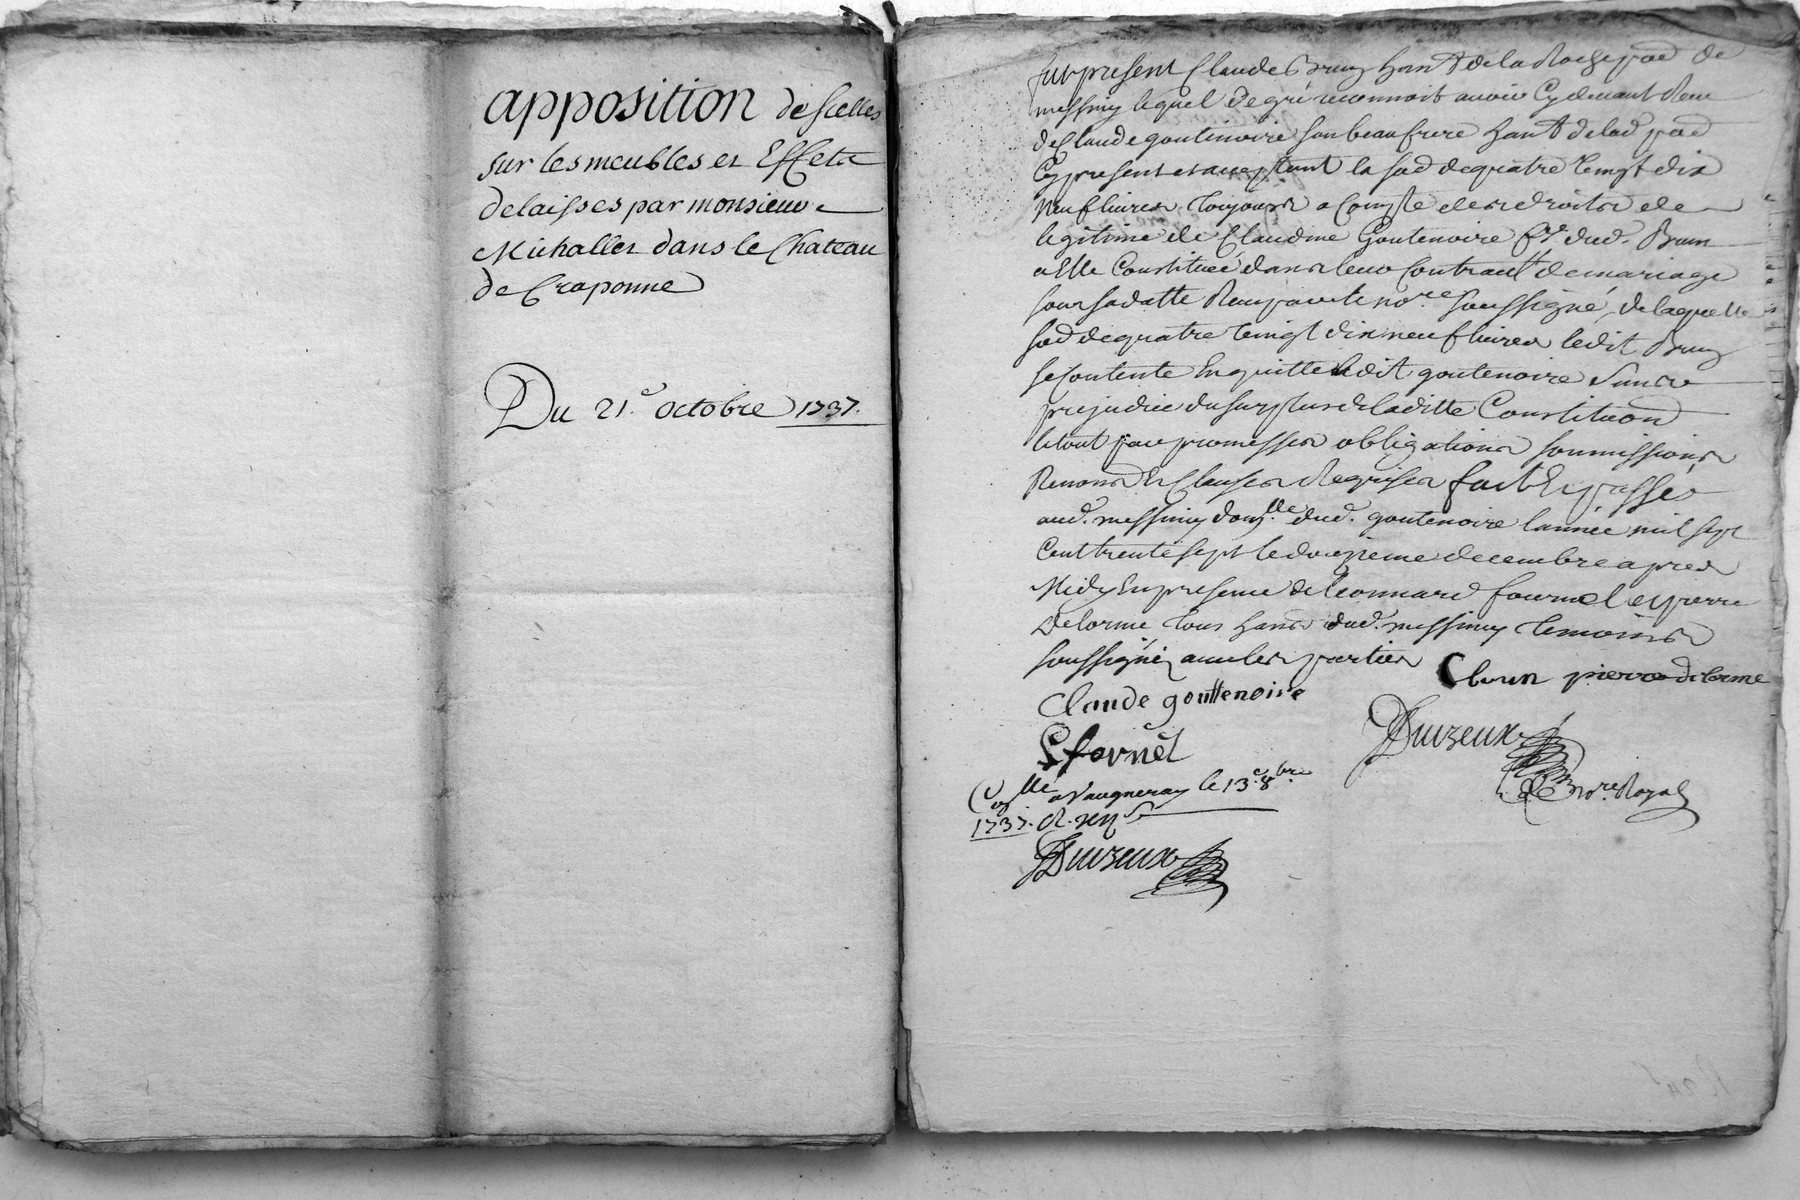 apposition de scelles
sur les meubles et Effets
delaisses par monsieur
Michallet dans le Chateau
de Craponne
Du 21.e octobre 1737.
fut present Claude Brun hant de la Roche parr de
messimy lequel de gré reconnoit avoir Cy devant Reçu
de Claude goutenoire son beau frere hant de lad parr
Cy present et acceptant la so͞e de quatre Vingt dix
neuf livres Toujours a Compte des droits de
legitime de Claudine Goutenoire fe dud. Brun
a Elle Constituée dans leur Contract de mariage
sous sa datte Reçu par le nore soussigné, de laquelle
so͞e de quatre Vingt dix neuf livres ledit Brun
se Contente En quitte ledit goutenoire sans
prejudice du surplus de laditte Constitu͞on
le tout par promesses obligations soumissions
Renons Et Clauses Requises fait Et passé
aud. messimy domlle dud. goutenoire l'année mil sept
Cent trente sept le douzieme decembre apres
Midy En presence de Leonnard fournel et pierre
Delorme tous hants dud. messimy temoins
soussignés avec les parties C brun pierre de lorme
Claude gouttenoire
L fornel
Duizeux
nore Royal
Conllé a Vaugneray le 13e. 8bre
1737. R.
Duizeux